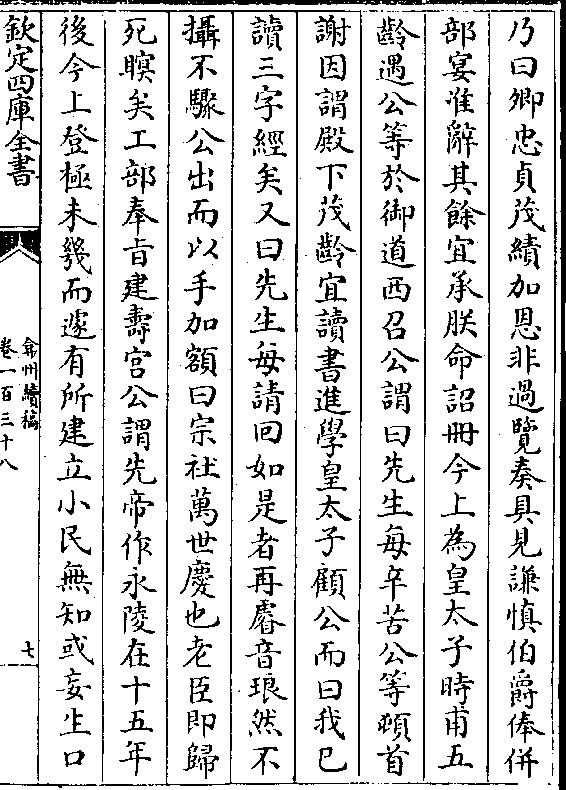 乃曰卿忠貞茂績加恩非過覽奏具見謙慎伯爵俸併
部宴准辭其餘宜承朕命詔冊今上為皇太子時甫五
齡遇公等於御道西召公謂曰先生每辛苦公等頓首
謝因謂殿下茂齡宜讀書進學皇太子顧公而曰我已
讀三字經矣又曰先生每請回如是者再睿音琅然不
攝不驟公出而以手加額曰宗社萬世慶也老臣即歸
死瞑矣工部奉旨建壽宮公謂先帝作永陵在十五年
後今上登極未幾而遽有所建立小民無知或妄生口
欽定四庫全書
弇州續稿
卷一百三十八
七